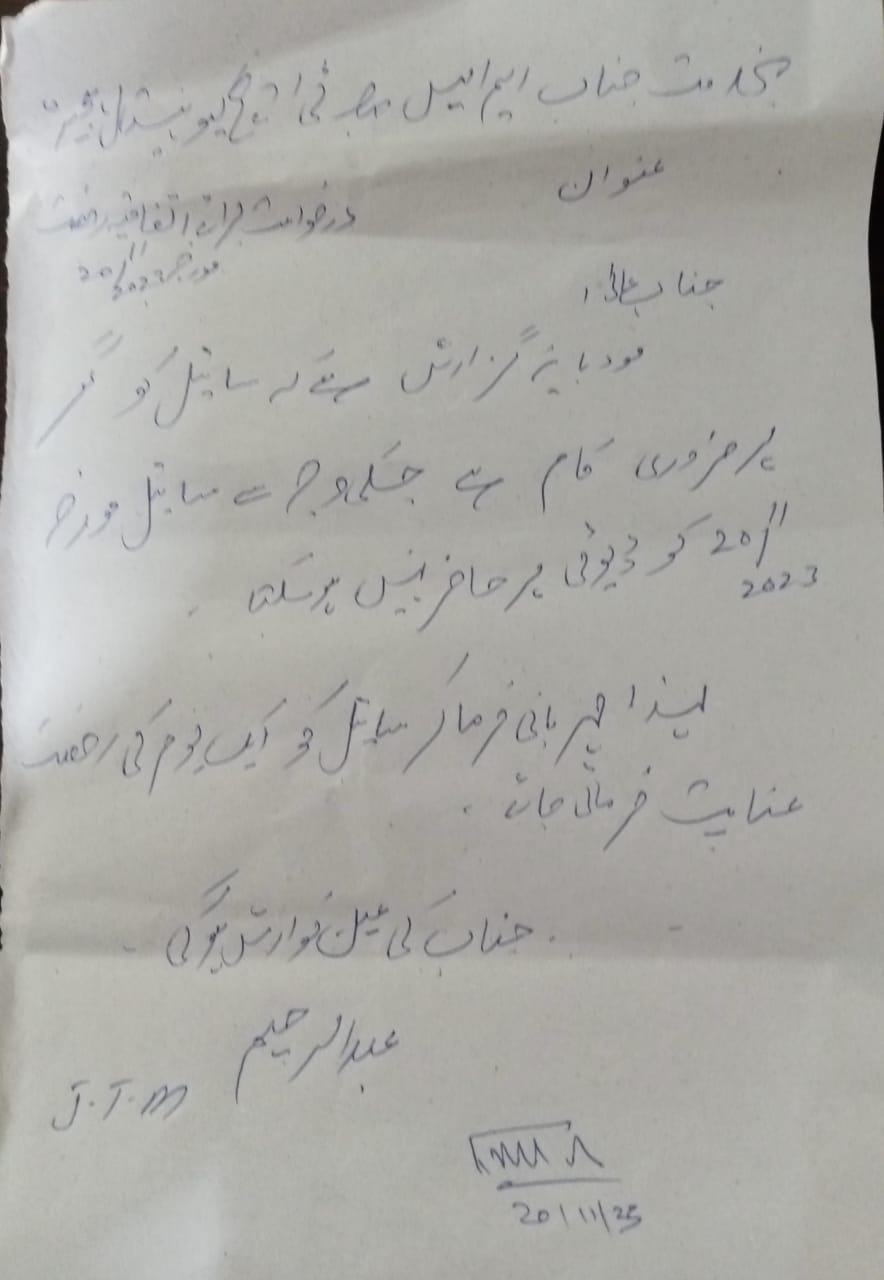 بخدمت جناب ایم ایس صاحب ٹی ایچ کیو ہسپتال
عنوان
درخواست برائے اتفاقیہ رخصت
مورخہ 20/11/2023
جناب عالی!
مودبانہ گزارش ہے کہ سائیل کو گھر
پر ضروری کام ہے جسکی وجہ سے سائیل مورخہ
20/11/2023 کو ڈیوٹی پر حاضر نہیں ہو سکتا
لہذا مہربانی فرما کر سائیل کو ایک یوم کی رخصت
عنایت فرمائی جائے
جناب کی عین نوازش ہوگی
عبدالرحیم
J.T.M
20/11/23